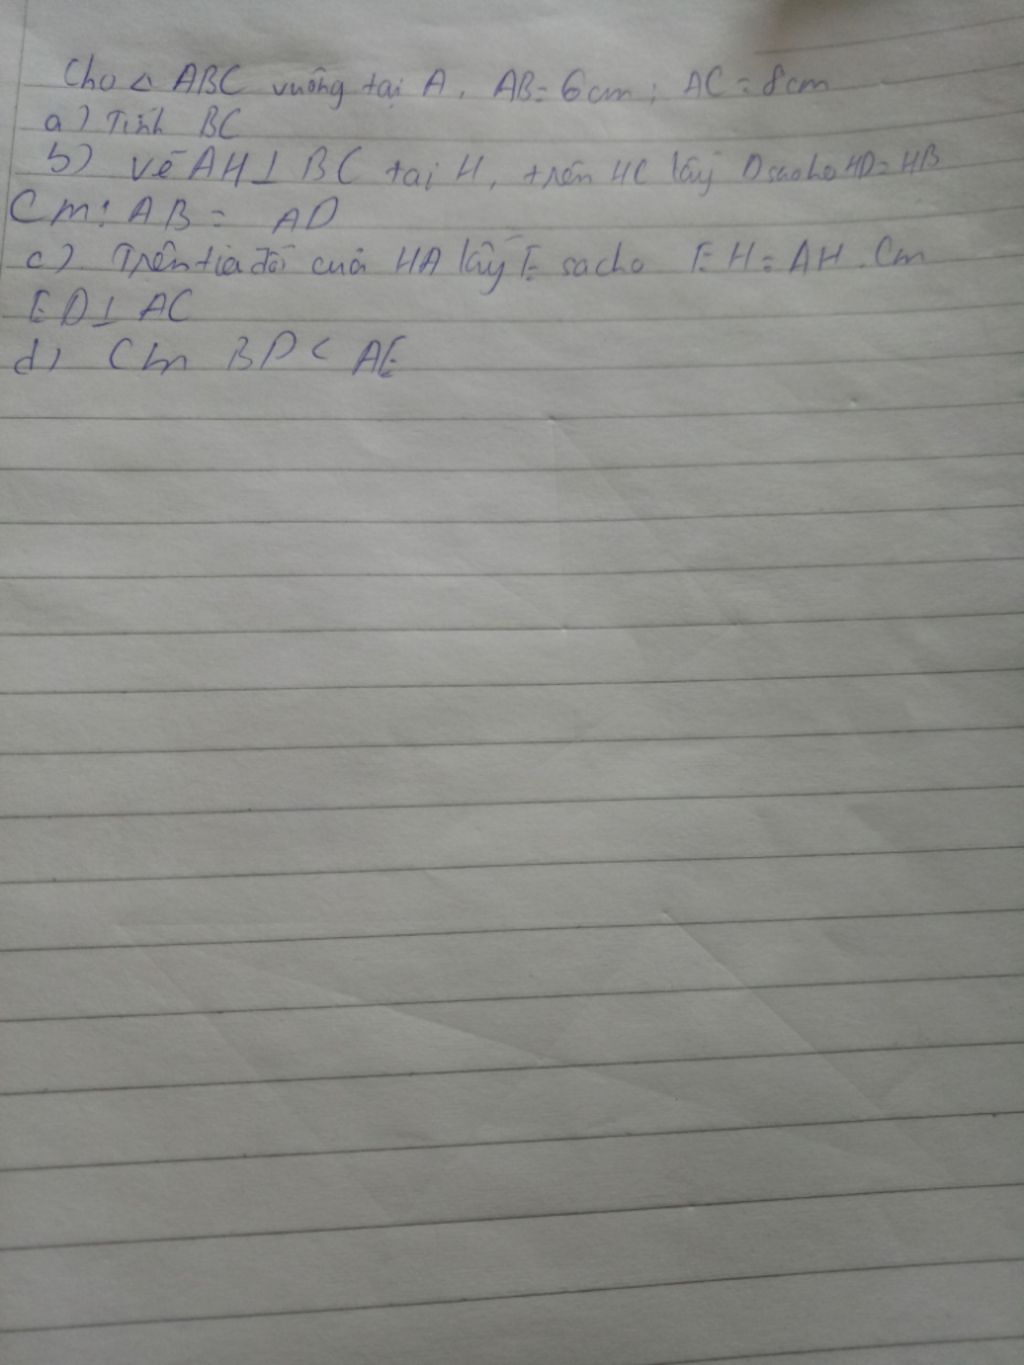 Cho △ ABC vuông tại A, AB = 6cm; AC = 8cm
a) Tính BC
b) vẽ AH⊥ BC tại H, trên HC lấy D sao cho HD = HB
Cm: AB = AD
c). Trên tia đối cuả HA lấy E sao cho EH = AH. Cm
ED⊥ AC
d) Cm BD < AE